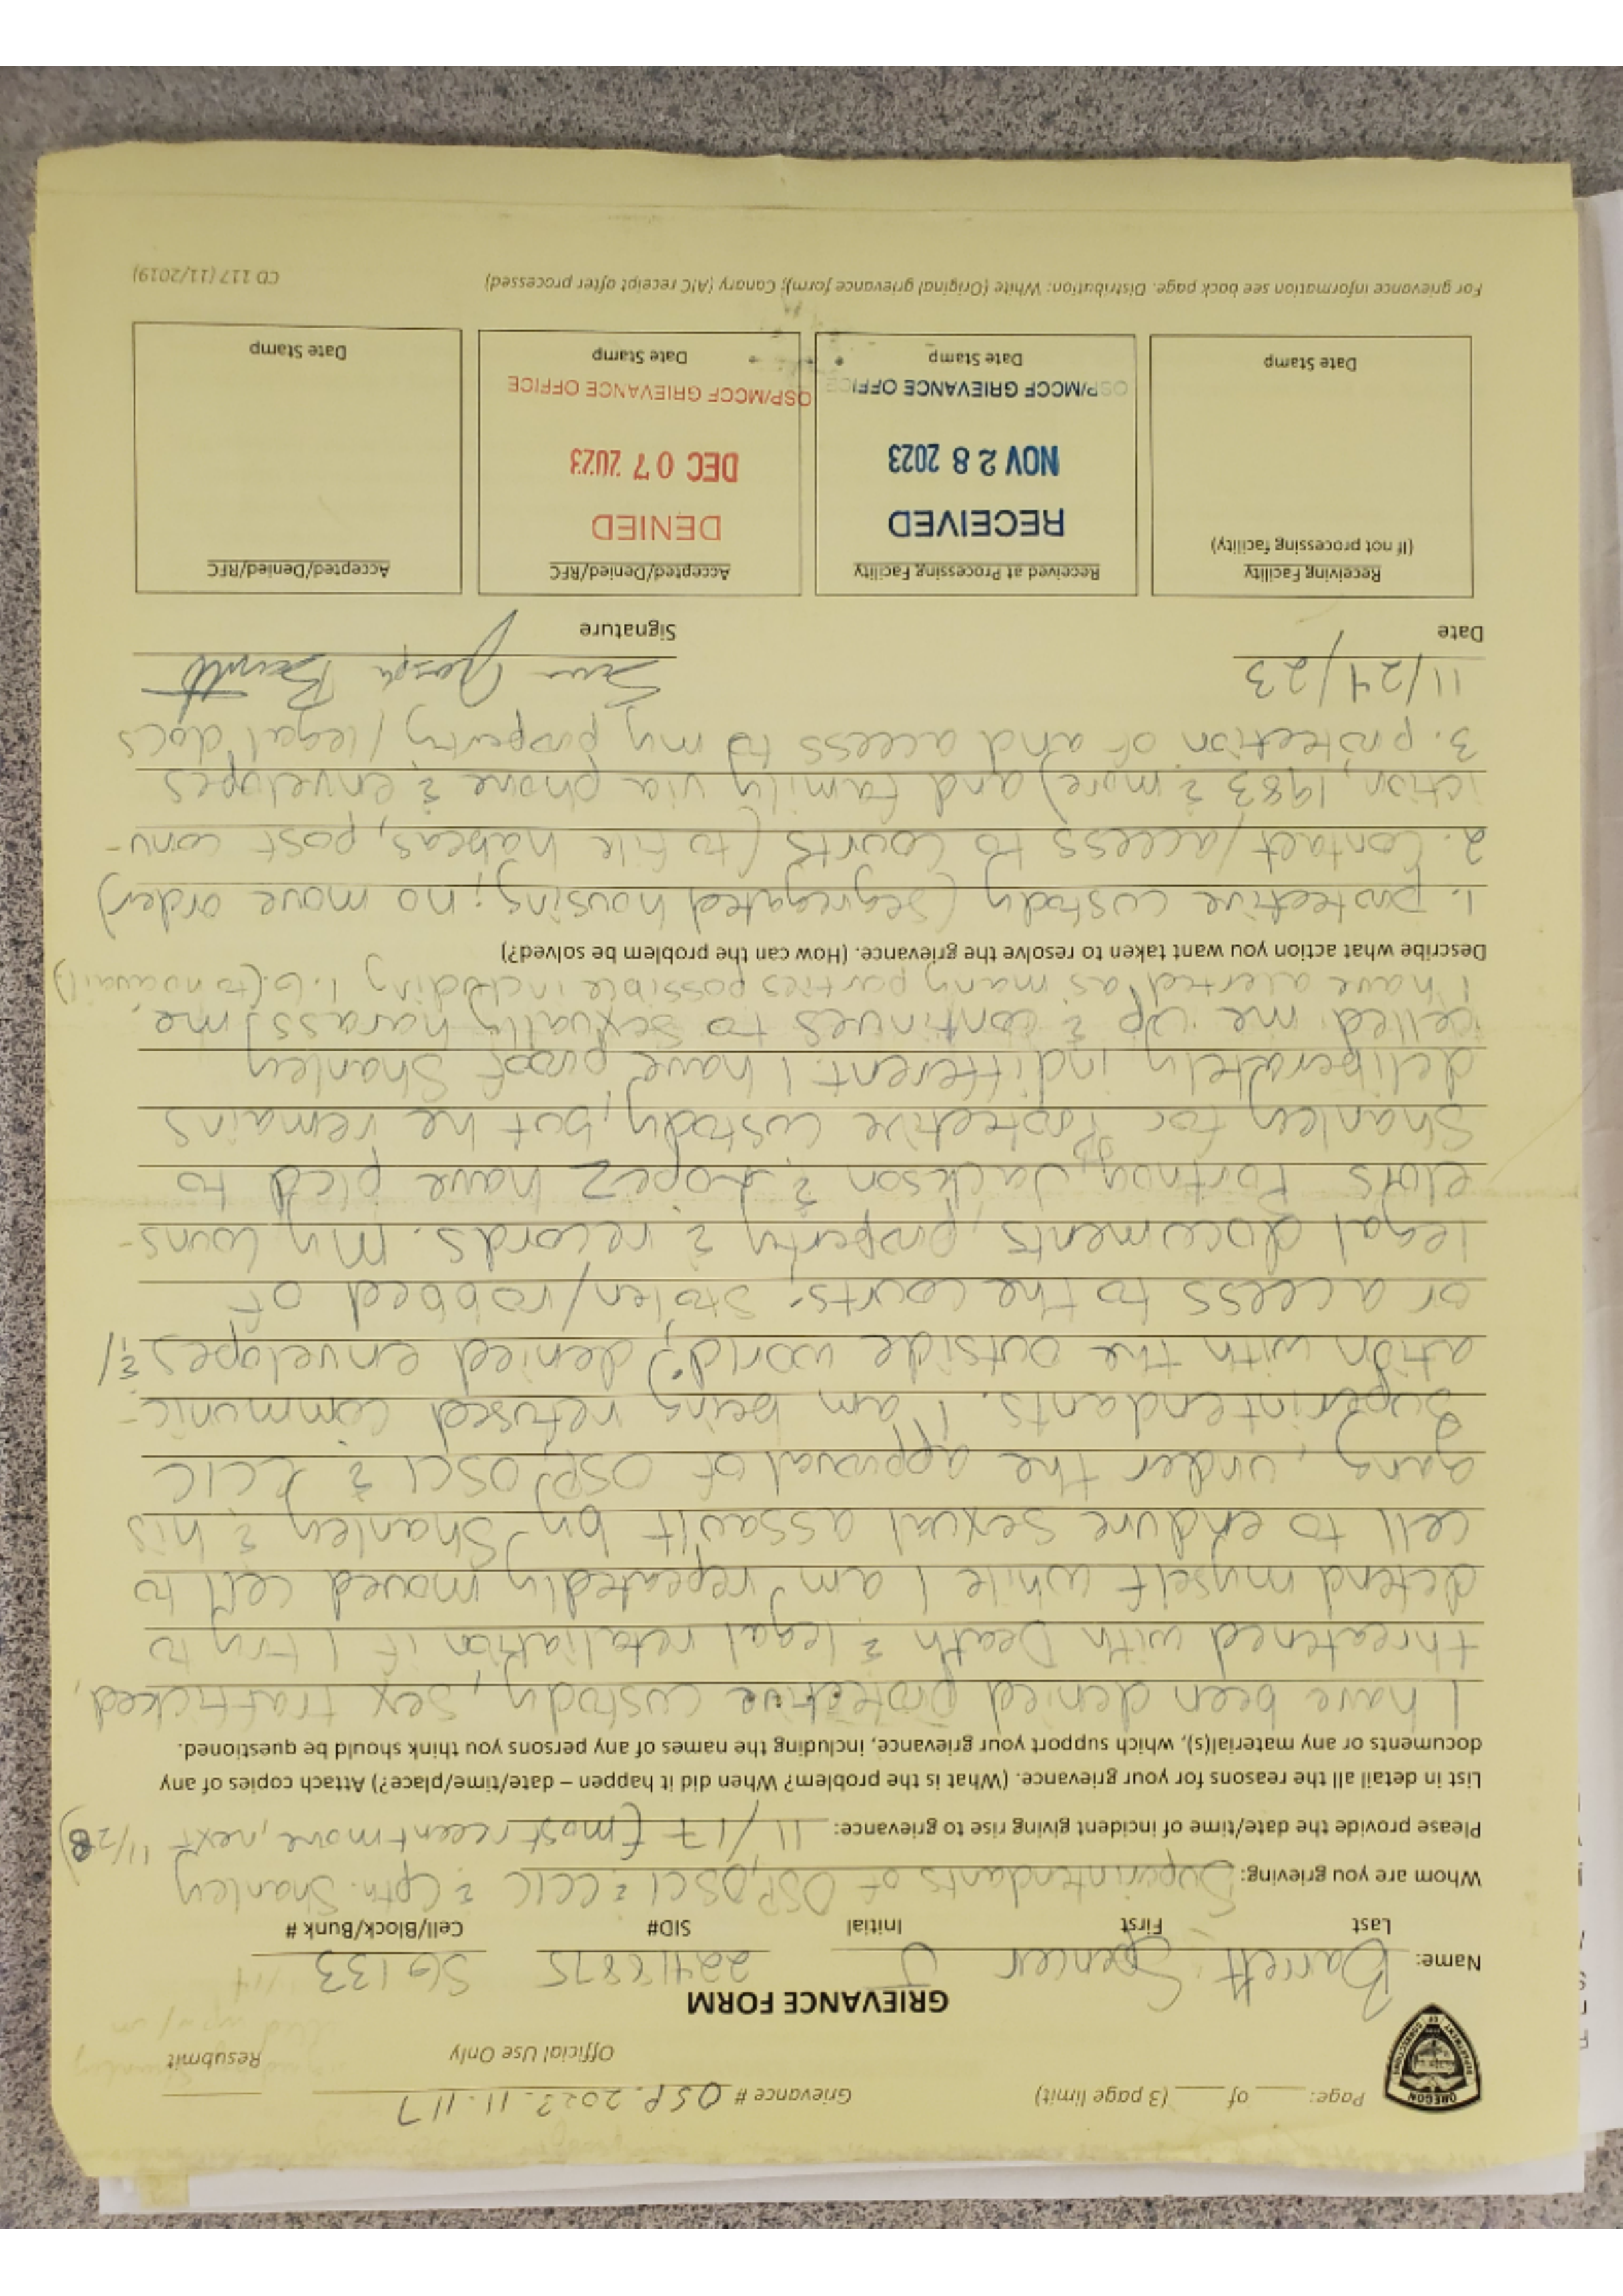 Page: ___ of ___ (3 page limit)
Grievance # OSP.2023.11.117
Official Use Only
Resubmit
OREGON
DEPARTMENT OF CORRECTIONS
GRIEVANCE FORM
Name: Barrett Spencer J 22418875 SG133
Last First Initial SID# Cell/Block/Bunk #
Whom are you grieving: Superintendants of OSP, OSCI & CCIC & Cptn. Shanley
Please provide the date/time of incident giving rise to grievance: 11/17 (most recent move, next 11/28)
List in detail all the reasons for your grievance. (What is the problem? When did it happen – date/time/place?) Attach copies of any
documents or any material(s), which support your grievance, including the names of any persons you think should be questioned.
I have been denied protective custody, sex trafficked,
threatened with Death & legal retaliation if I try to
defend myself while I am repeatedly moved cell to
cell to endure sexual assault by Shanley & his
gang, under the approval of OSP, OSCI & CCIC
Superintendants. I am being refused communic-
ation with the outside world; denied envelopes &/
or access to the courts; stolen/robbed of
legal documents, property & records. My couns-
elors Portnoy, Jackson & Lopez have pled to
Shanley for Protective custody, but he remains
deliberately indifferent. I have proof Shanley
celled me up & continues to sexually harass me.
I have alerted as many parties possible including I.G. (to no avail)
Describe what action you want taken to resolve the grievance. (How can the problem be solved?)
1. protective custody (segregated housing; no move order)
2. Contact/access to courts (to file habeas, post conv-
iction, 1983 & more) and family via phone & envelopes
3. protection of and access to my property/legal docs
11/24/23
Date
Signature
Receiving Facility
(If not processing facility)
Date Stamp
Received at Processing Facility
RECEIVED
NOV 28 2023
OSP/MCCF GRIEVANCE OFFICE
Date Stamp
Accepted/Denied/RFC
DENIED
DEC 07 2023
OSP/MCCF GRIEVANCE OFFICE
Date Stamp
Accepted/Denied/RFC
Date Stamp
For grievance information see back page. Distribution: White (Original grievance form); Canary (AIC receipt after processed)
CD 117 (11/2019)